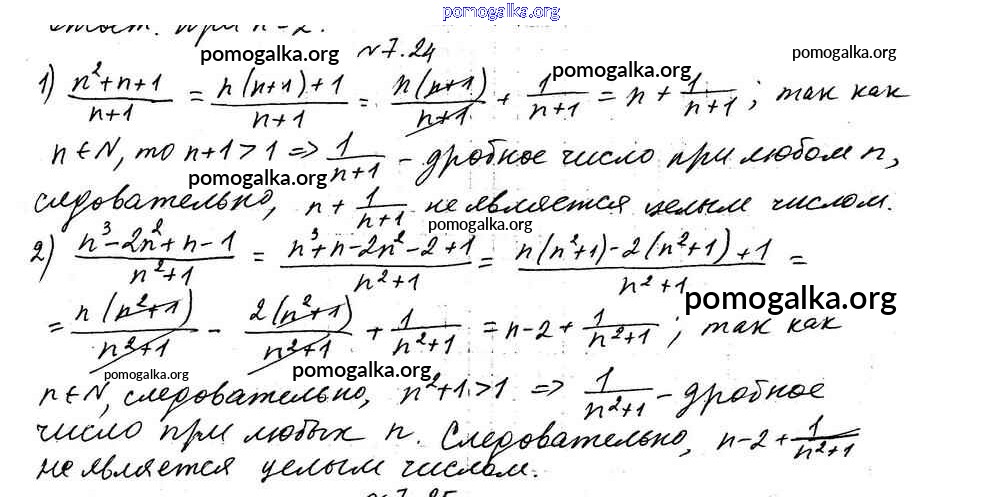 pomogalka.org
при n-2.
pomogalka.org pomogalka.org
№7.24
pomogalka.org
1) (n²+n+1)/(n+1) = (n(n+1)+1)/(n+1) = n(n+1)/(n+1) + 1/(n+1) = n + 1/(n+1); так как
n∈N, то n+1>1 => 1/(n+1) - дробное число при любом n,
pomogalka.org
следовательно, n + 1/(n+1) не является целым числом.
pomogalka.org
2) (n³-2n²+n-1)/(n²+1) = (n³+n-2n²-2+1)/(n²+1) = (n(n²+1)-2(n²+1)+1)/(n²+1) =
pomogalka.org
= n(n²+1)/(n²+1) - 2(n²+1)/(n²+1) + 1/(n²+1) = n-2 + 1/(n²+1); так как
pomogalka.org pomogalka.org
n∈N, следовательно, n²+1>1 => 1/(n²+1) - дробное
число при любых n. Следовательно, n-2 + 1/(n²+1)
не является целым числом.